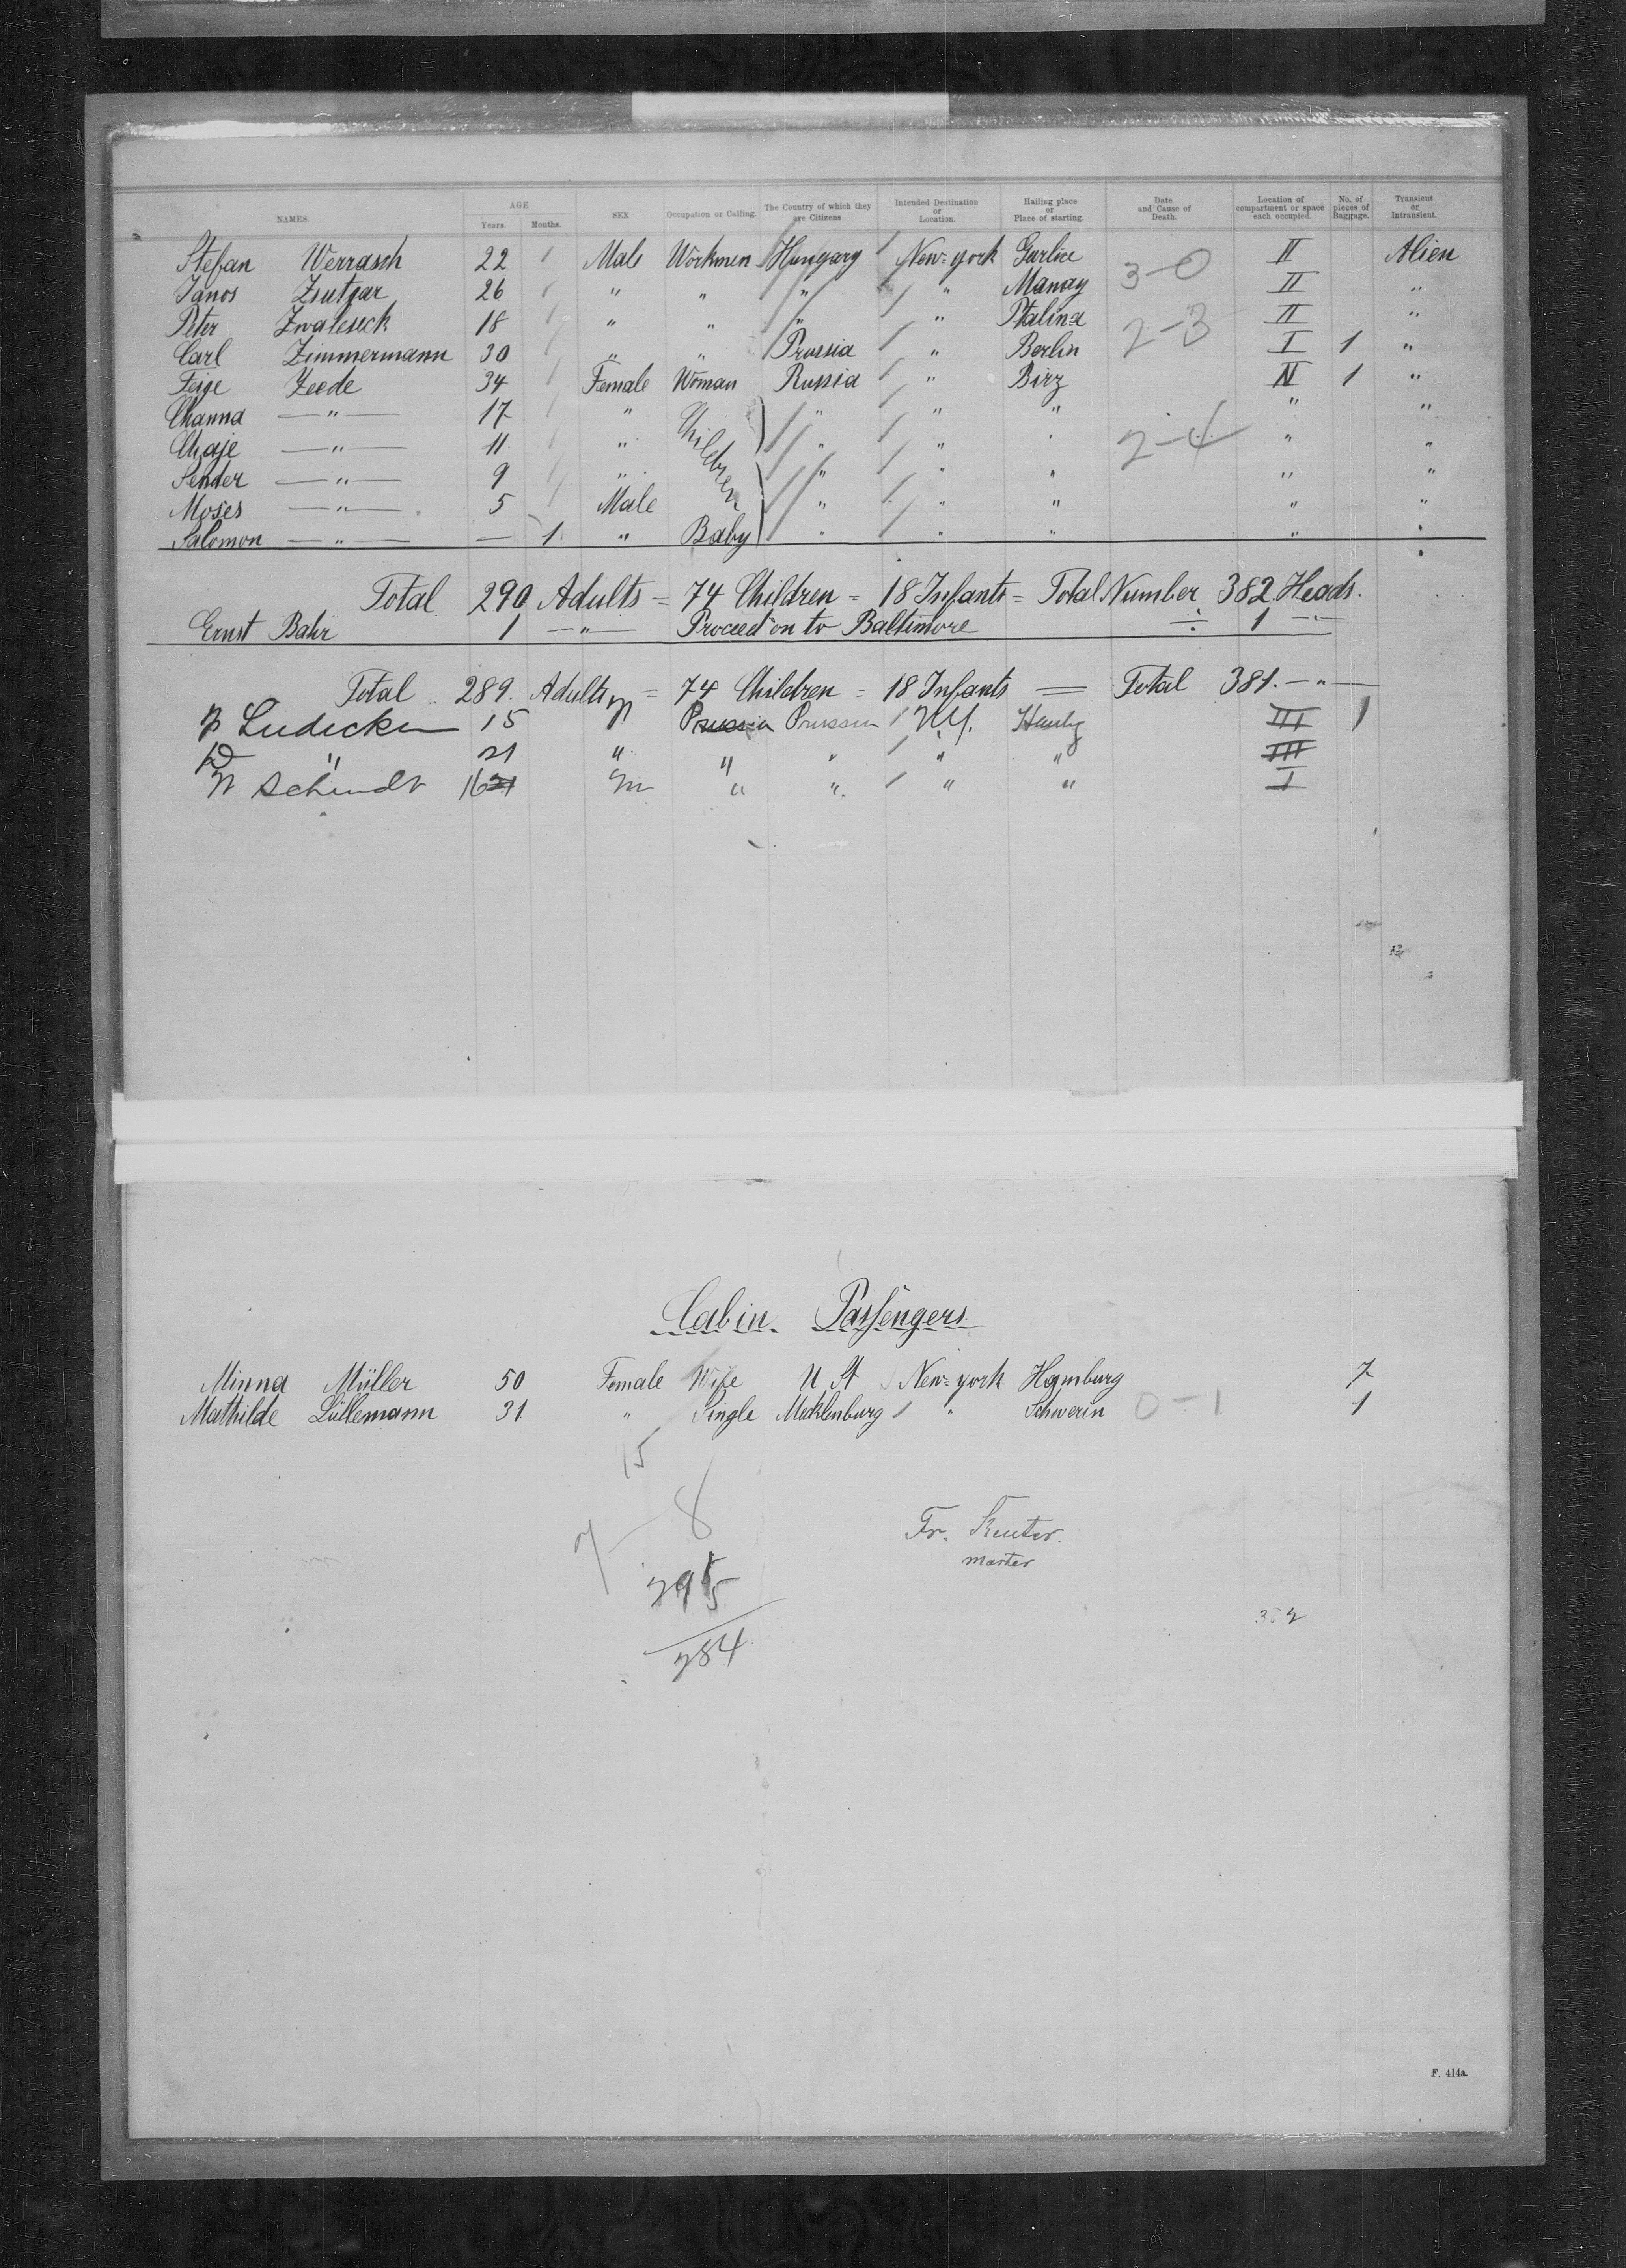 NAMES. AGE Years. Months. SEX Occupation or Calling. The Country of which they are Citizens Intended Destination or Location. Hailing place or Place of starting. Date and Cause of Death. Location of compartment or space each occupied. No. of pieces of Baggage. Transient or Intransient.
Stefan Werrasch 22 Male Workmen Hungary 1 New-york Gurlice II Alien
Janos Zsutzar 26 " " " 1 " Manay 3-0 II "
Peter Zwaleseck 18 " " " 1 " Ptalina II "
Carl Zimmermann 30 " " Prussia 1 " Berlin 2-3 I 1 "
Feige Zeede 34 Female Woman Russia 1 " Birz IV 1 "
Channa —"— 17 " Children " 1 " " " "
Chaje —"— 11 " " 1 " " 2-4 " "
Sender —"— 9 " " 1 " " " "
Moses —"— 5 Male " 1 " " " "
Salomon —"— — 1 " Baby " 1 " " " "
Total 290 Adults = 74 Children = 18 Infants = Total Number 382 Heads.
Ernst Bahr 1 —"— Proceed on to Baltimore ÷ 1 —"—
Total 289. Adults = 74 Children = 18 Infants = Total 381. —"—
Ludicken 15 Prussia Prussia 1 N.Y. Hambg III 1
" 21 " " " 1 " " III
Schmidt 16 m " " 1 " " I
Cabin Passengers.
Minna Müller 50 Female Wife U St New-york Hamburg 7
Mathilde Lüllemann 31 " Single Mecklenburg 1 " Schwerin 0-1 1
15
7-8
295
284
Fr. Reuter.
master
F. 414a.